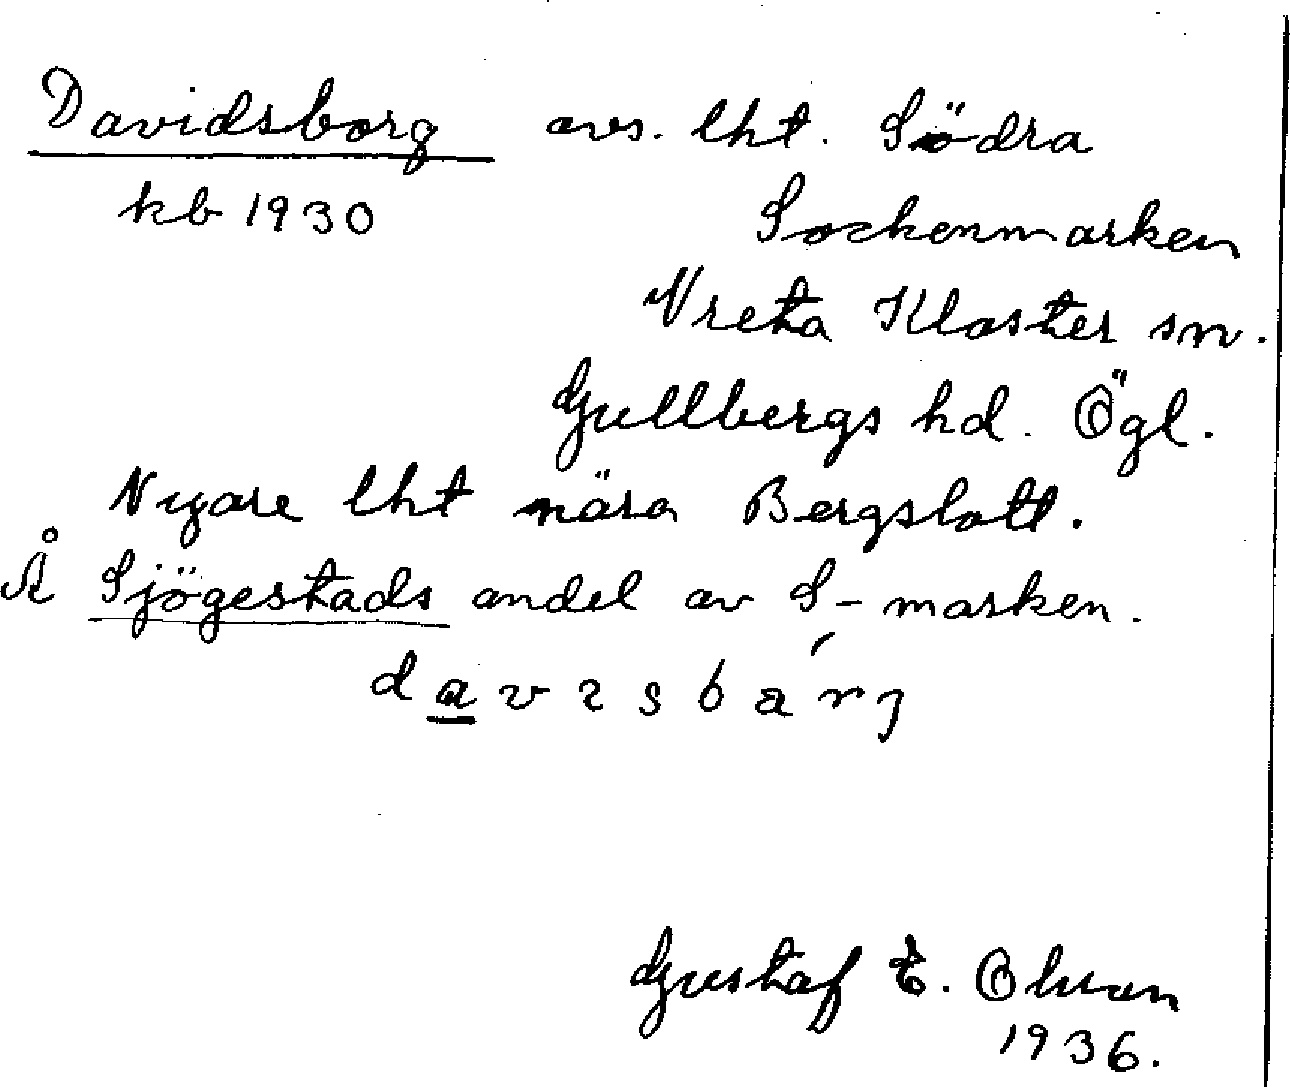 Davidsborg avs. lht. Södra
kb 1930 Sockenmarken
Vreta Kloster sn.
Gullbergs hd. Ögl.
Nyare lht nära Bergslott.
Å Sjögestads andel av S-marken.
Gustaf E. Olsson
1936.